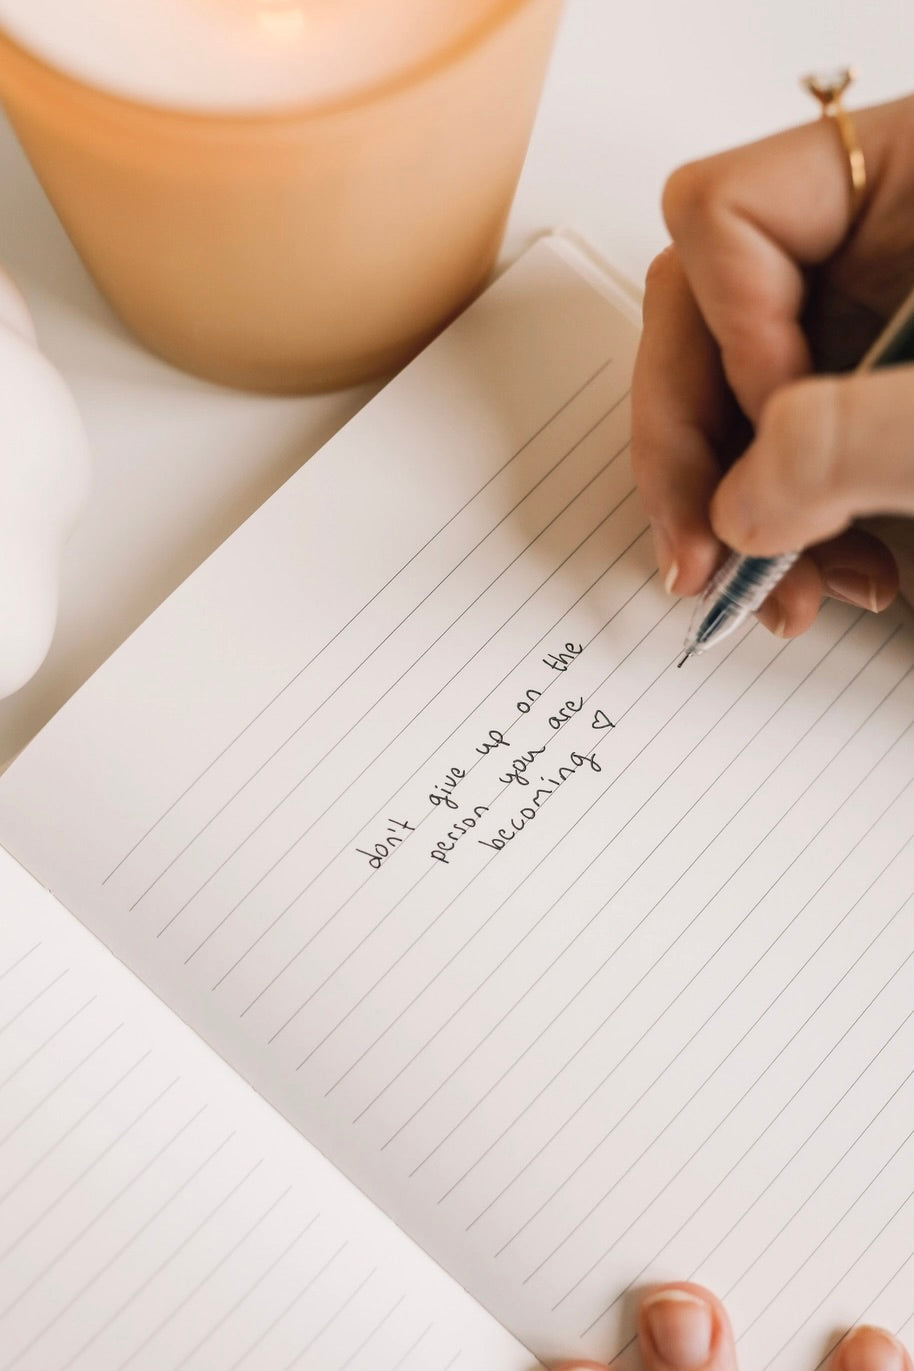 don't give up on the
person you are
becoming ♡